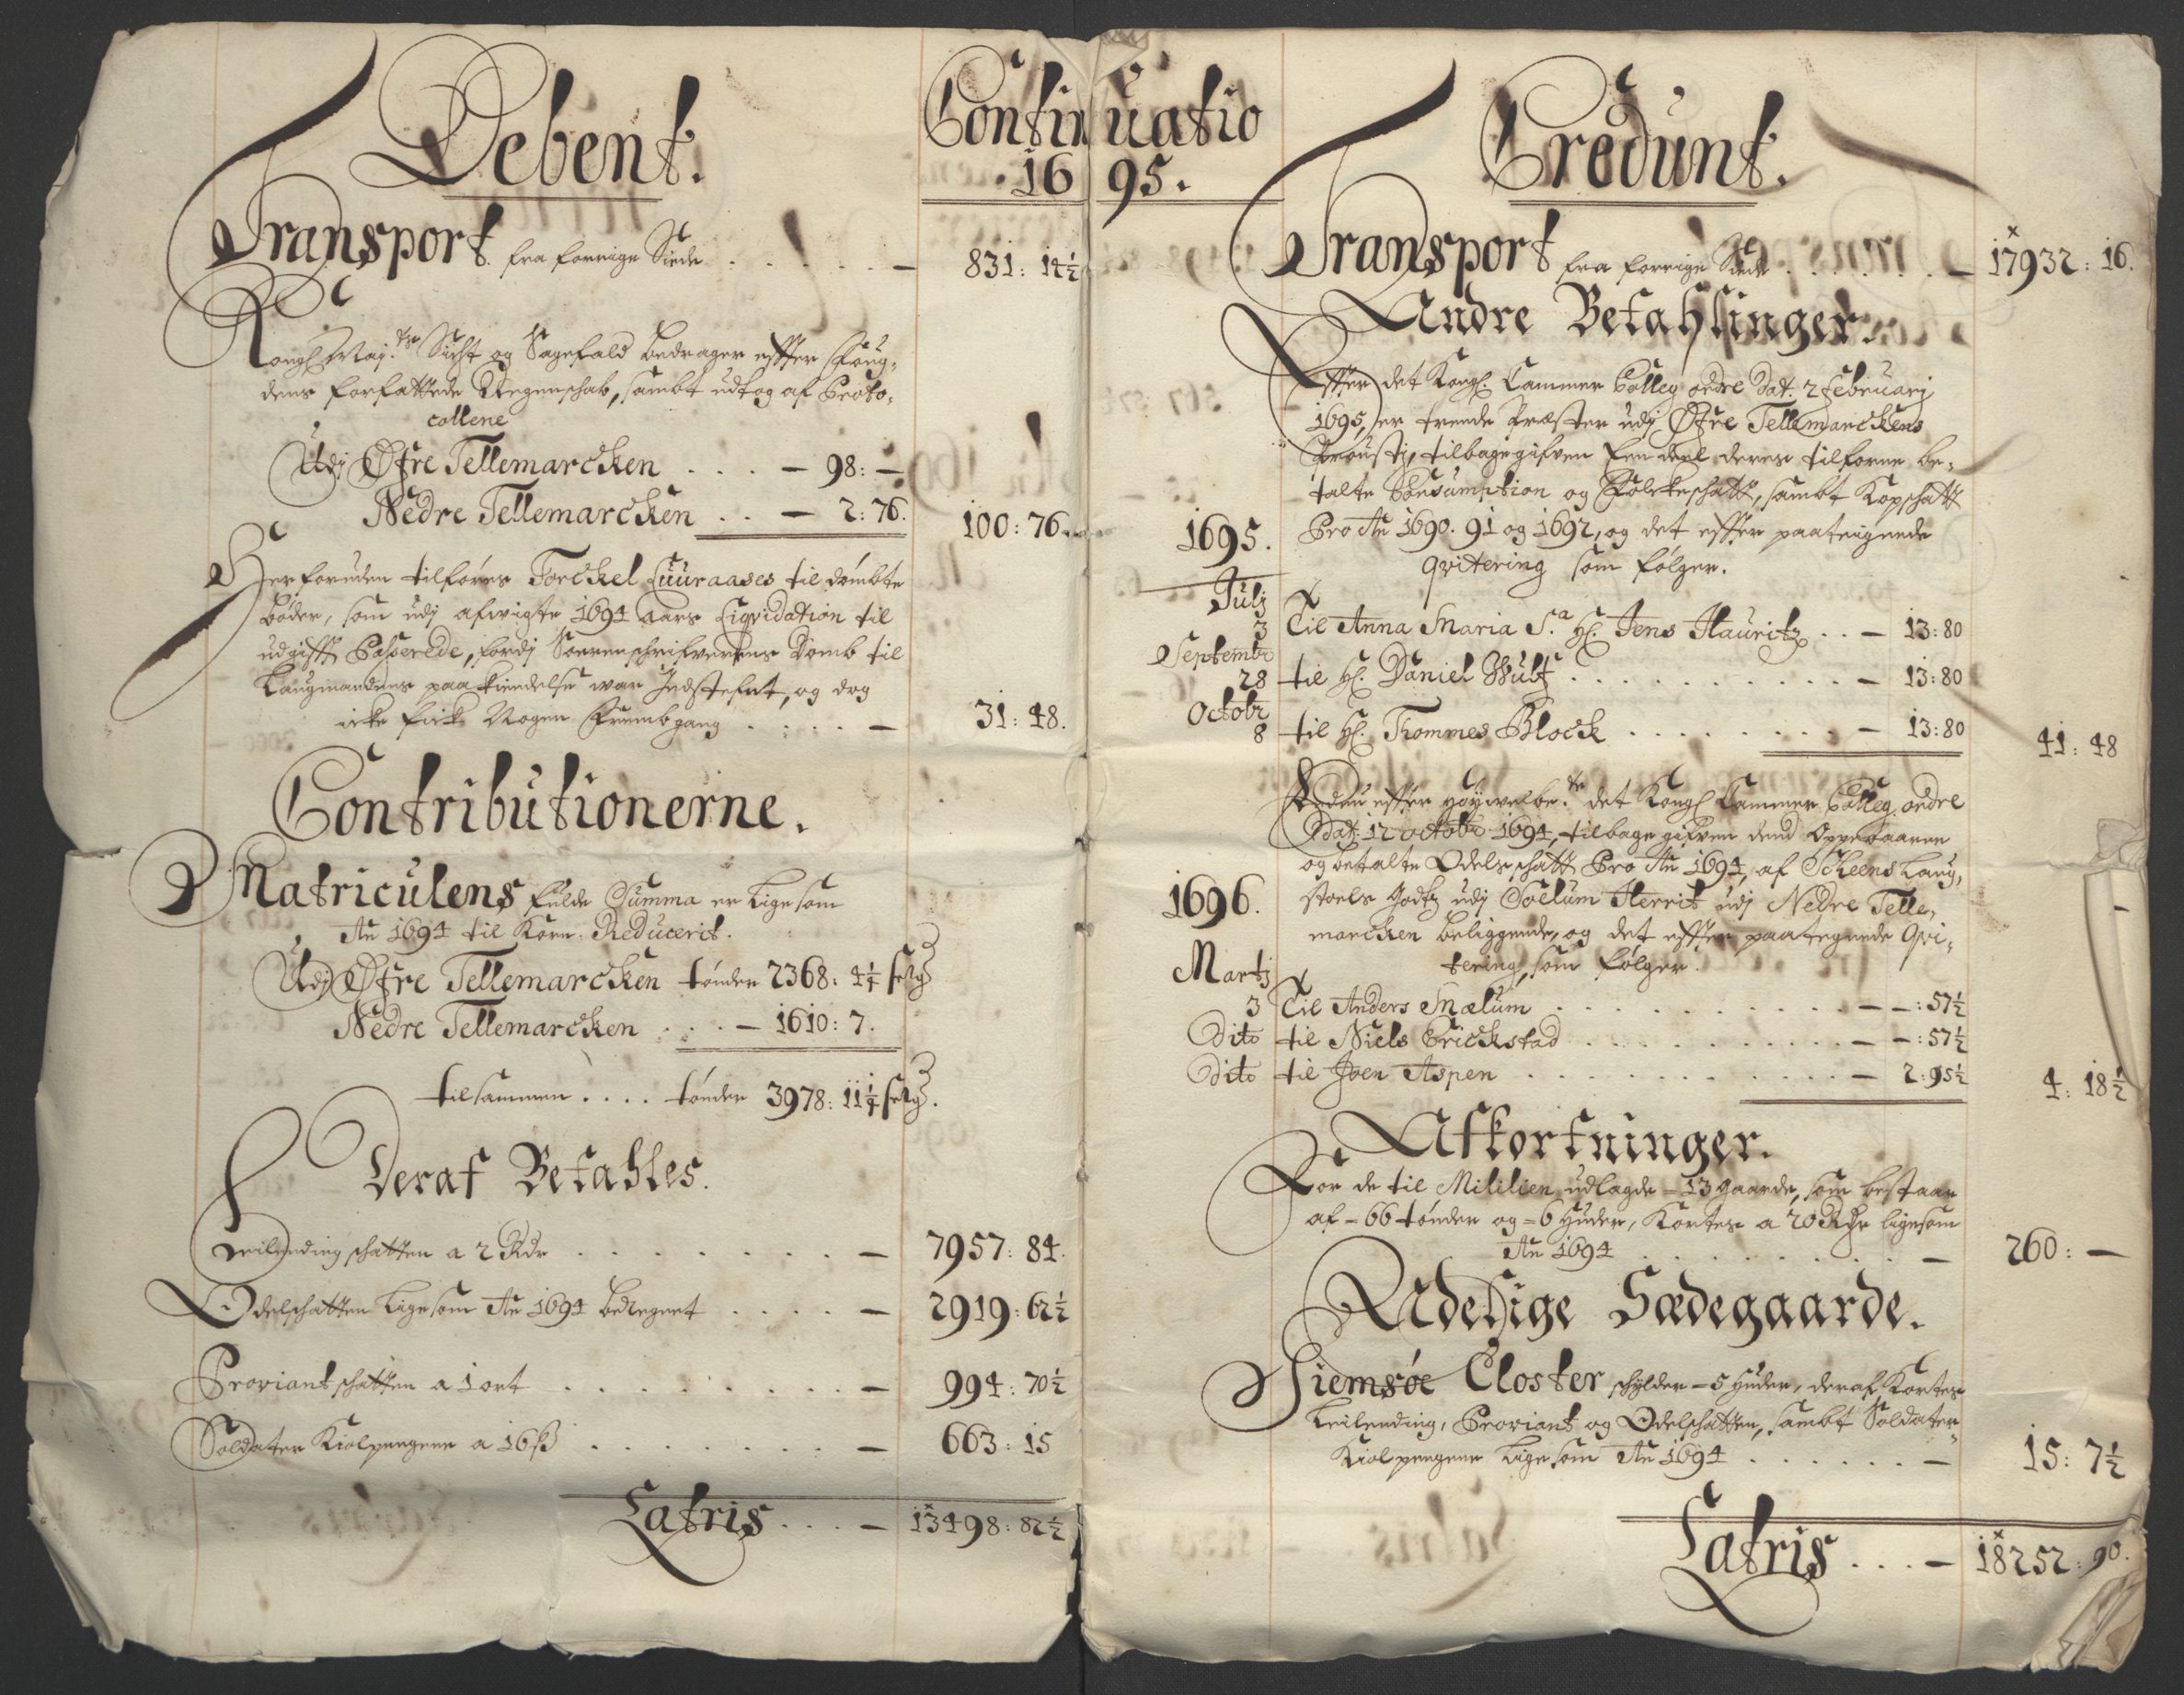 Debent.
Continuatio
1695.
Transport fra forrige Siede . . . . . — 831: 14½
Kongl: May:ts Sicht og Sagefald bedrager effter Foug-
dens forfattede Regenschab, sambt udtog af Proto-
collerne
Udj Øfre Tellemarcken . . . — 98: —
Nedre Tellemarcken . . — 2: 76.
100: 76.
Herforuden tilføres Torckel Luuraases til dømbte
bøder, som udj afvigte 1694 aars Liqvidation til
udgifft Passerede, fordj Sorenschrifverens Domb til
Laugmandens paakiendelse war Indstefnt, og dog
icke fick Nogen Frembgang . . . . — 31: 48.
Contributionerne.
Matriculens fulde Summa er Ligesom
Ao 1694 til Korn Reducerit.
Udj Øfre Tellemarcken tønder 2368: 4¼ setg
Nedre Tellemarcken . . . — 1610: 7.
tilsammen . . . . tønder 3978: 11¼ setg.
Deraf Betahles.
Leilending schatten a 2 Rdr . . . . . . — 7957: 84.
Odelschatten Ligesom Ao 1694 beregnet . . . . — 2919: 62½
Proviantschatten a 1 ort . . . . . . . — 994: 70½
Soldater Kiolpengene a 16 ß . . . . . . . — 663: 15
Latris . . . — 13498: 82½
Credunt.
Transport fra forrige Siede . . . . . — 17932: 16.
Andre Betahlinger.
Effter det Kongl: Cammer Colleg ordre Dat: 2 Februarj
1695, er trende Præster udj Øfre Tellemarckens
Proustj, tilbagegifven Een deel deres tilforne be-
talte Consumption og Folckeschatt, sambt Kopschatt
Pro Ao 1690. 91 og 1692, og det effter paategnede
qvitering som følger.
1695.
Julj
3 Til Anna Maria S.a Hr. Jens Lauritz . . — 13: 80
Septembr
28 til Hr. Daniel . . . . . . . . . — 13: 80
Octobr
8 til Hr. Tommes Block . . . . . . . . — 13: 80
41: 48
Endnu effter høywelbe.te det Kongl Cammer Colleg. ordre
Dat: 12 octobr 1694, tilbagegifven dend Oppebaarne
og betalte Odelsschatt Pro Ao 1694, af Scheens Laug-
stoels Godtz udj Soelum Herrit udj Nedre Telle-
marcken beliggende, og det effter paategnede Qvi-
tering, som følger.
1696.
Martj
3 Til Anders Mælum . . . . . . . — — : 57½
Dito til Niels Erickstad . . . . . . . — — : 57½
Dito til Joen Aspen . . . . . . . . — 2: 95½
4: 18½
Afkortninger.
For de til Militien udlagde — 13 gaarde, som bestaar
af — 66 tønder og — 6 Huder, Kortes a 20 Rdr ligesom
Ao 1694 . . . . . . . . — 260: —
Adelige Sædegaarde.
Giemsøe Closter schylder — 5 Huder, deraf Kortes
Leilending, Proviant og Odelschatten, sambt Soldater-
Kiolpengene Ligesom Ao 1694 . . . . . . — 15: 7½
Latris . . . — 18252: 90.